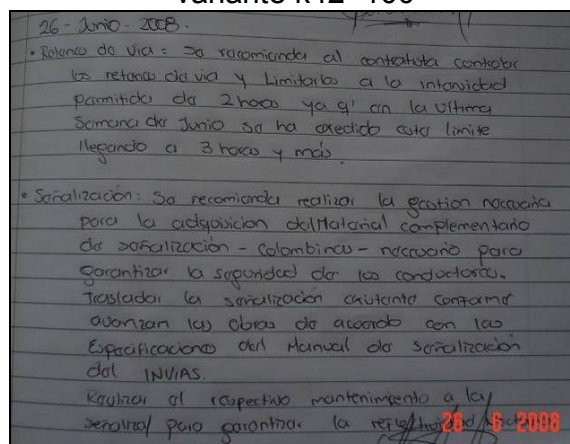 variante k12+100
26 - Junio - 2008.
• Retenes de Via = Se recomienda al contratista controlar
los retenes de via y Limitarlos a la intensidad
permitida de 2 horas ya q' en la Ultima
Semana de Junio se ha exedido este limite
llegando a 3 horas y más.
• Señalización: Se recomienda realizar la gestion necesaria
para la adquisicion del Material complementario
de señalización - Colombinas - necesario para
garantizar la seguridad de los conductores.
Trasladar la señalización existente conforme
avanzan las obras de acuerdo con las
Especificaciones del Manual de Señalización
del INVIAS.
Realizar el respectivo mantenimiento a la
señal para garantizar la
26 6 2008